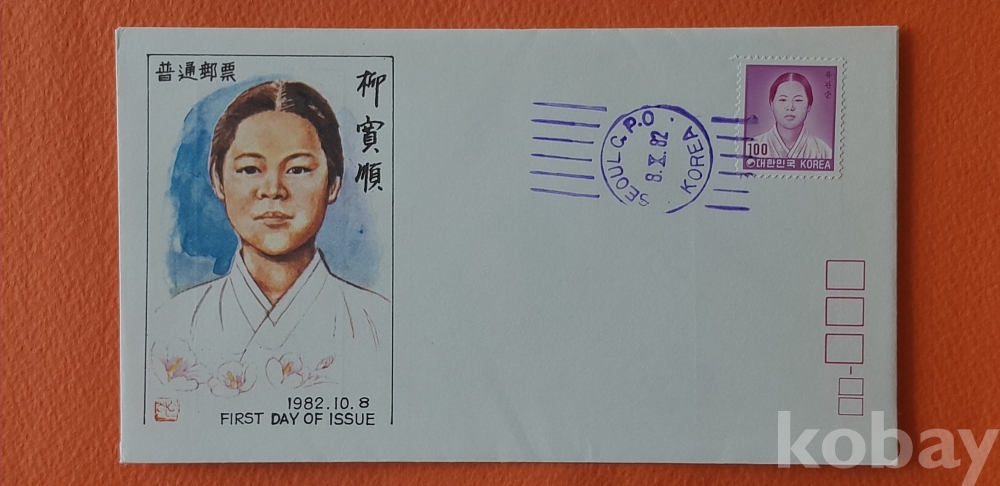 普通郵票
柳寬順
1982.10.8
FIRST DAY OF ISSUE
SEOUL G.P.O
8.X.82.
KOREA
유관순
100
대한민국 KOREA
kobay